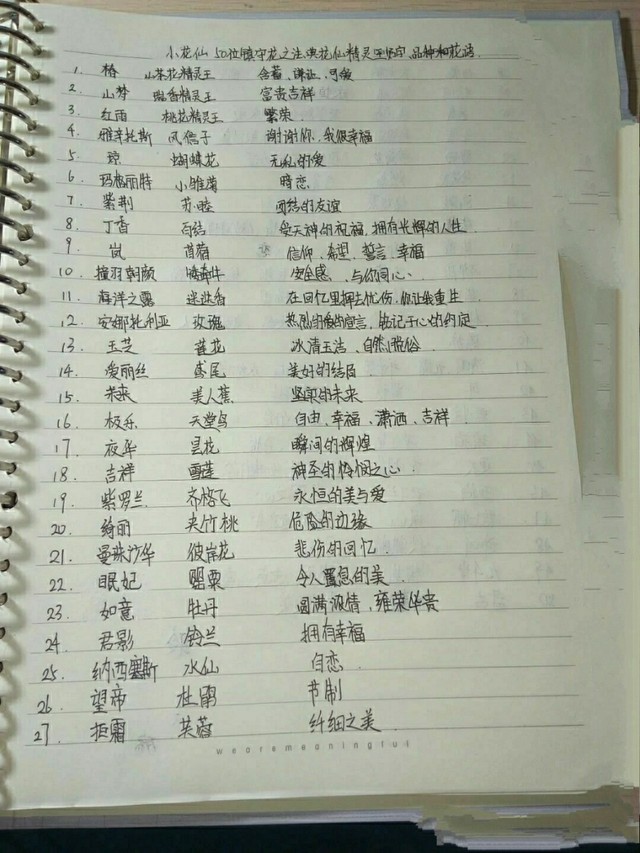 小花仙 50位镇守花之法典花仙精灵王名字、品种和花语.
1. 椿 山茶花精灵王 含蓄、谦让、可爱
2. 山梦 瑞香精灵王 富贵吉祥
3. 红雨 桃花精灵王 繁荣
4. 雅辛托斯 风信子 谢谢你,我很幸福
5. 琼 蝴蝶花 无私的爱
6. 玛格丽特 小雏菊 暗恋
7. 紫荆 苏睦 团结的友谊
8. 丁香 百结 受天神的祝福,拥有光辉的人生
9. 岚 苜蓿 信仰、希望、誓言、幸福
10. 撞羽朝颜 矮牵牛 安全感、与你同心
11. 海洋之露 迷迭香 在回忆里拥去忧伤,你让我重生
12. 安娜托利亚 玫瑰 热烈的爱的宣言,铭记于心的约定
13. 玉芝 莲花 冰清玉洁、自然脱俗
14. 爱丽丝 鸢尾 美好的结局
15. 美人蕉 坚实的未来
16. 极乐 天堂鸟 自由、幸福、潇洒、吉祥
17. 夜华 昙花 瞬间的辉煌
18. 吉祥 雪莲 神圣的怜悯之心
19. 紫罗兰 齐格飞 永恒的美与爱
20. 绮丽 夹竹桃 危险的边缘
21. 曼珠沙华 彼岸花 悲伤的回忆
22. 眠妃 罂粟 令人窒息的美
23. 如意 牡丹 圆满浓情、雍荣华贵
24. 君影 铃兰 拥有幸福
25. 纳西塞斯 水仙 自恋
26. 望帝 杜鹃 节制
27. 拒霜 芙蓉 纤细之美
wearemeaningful